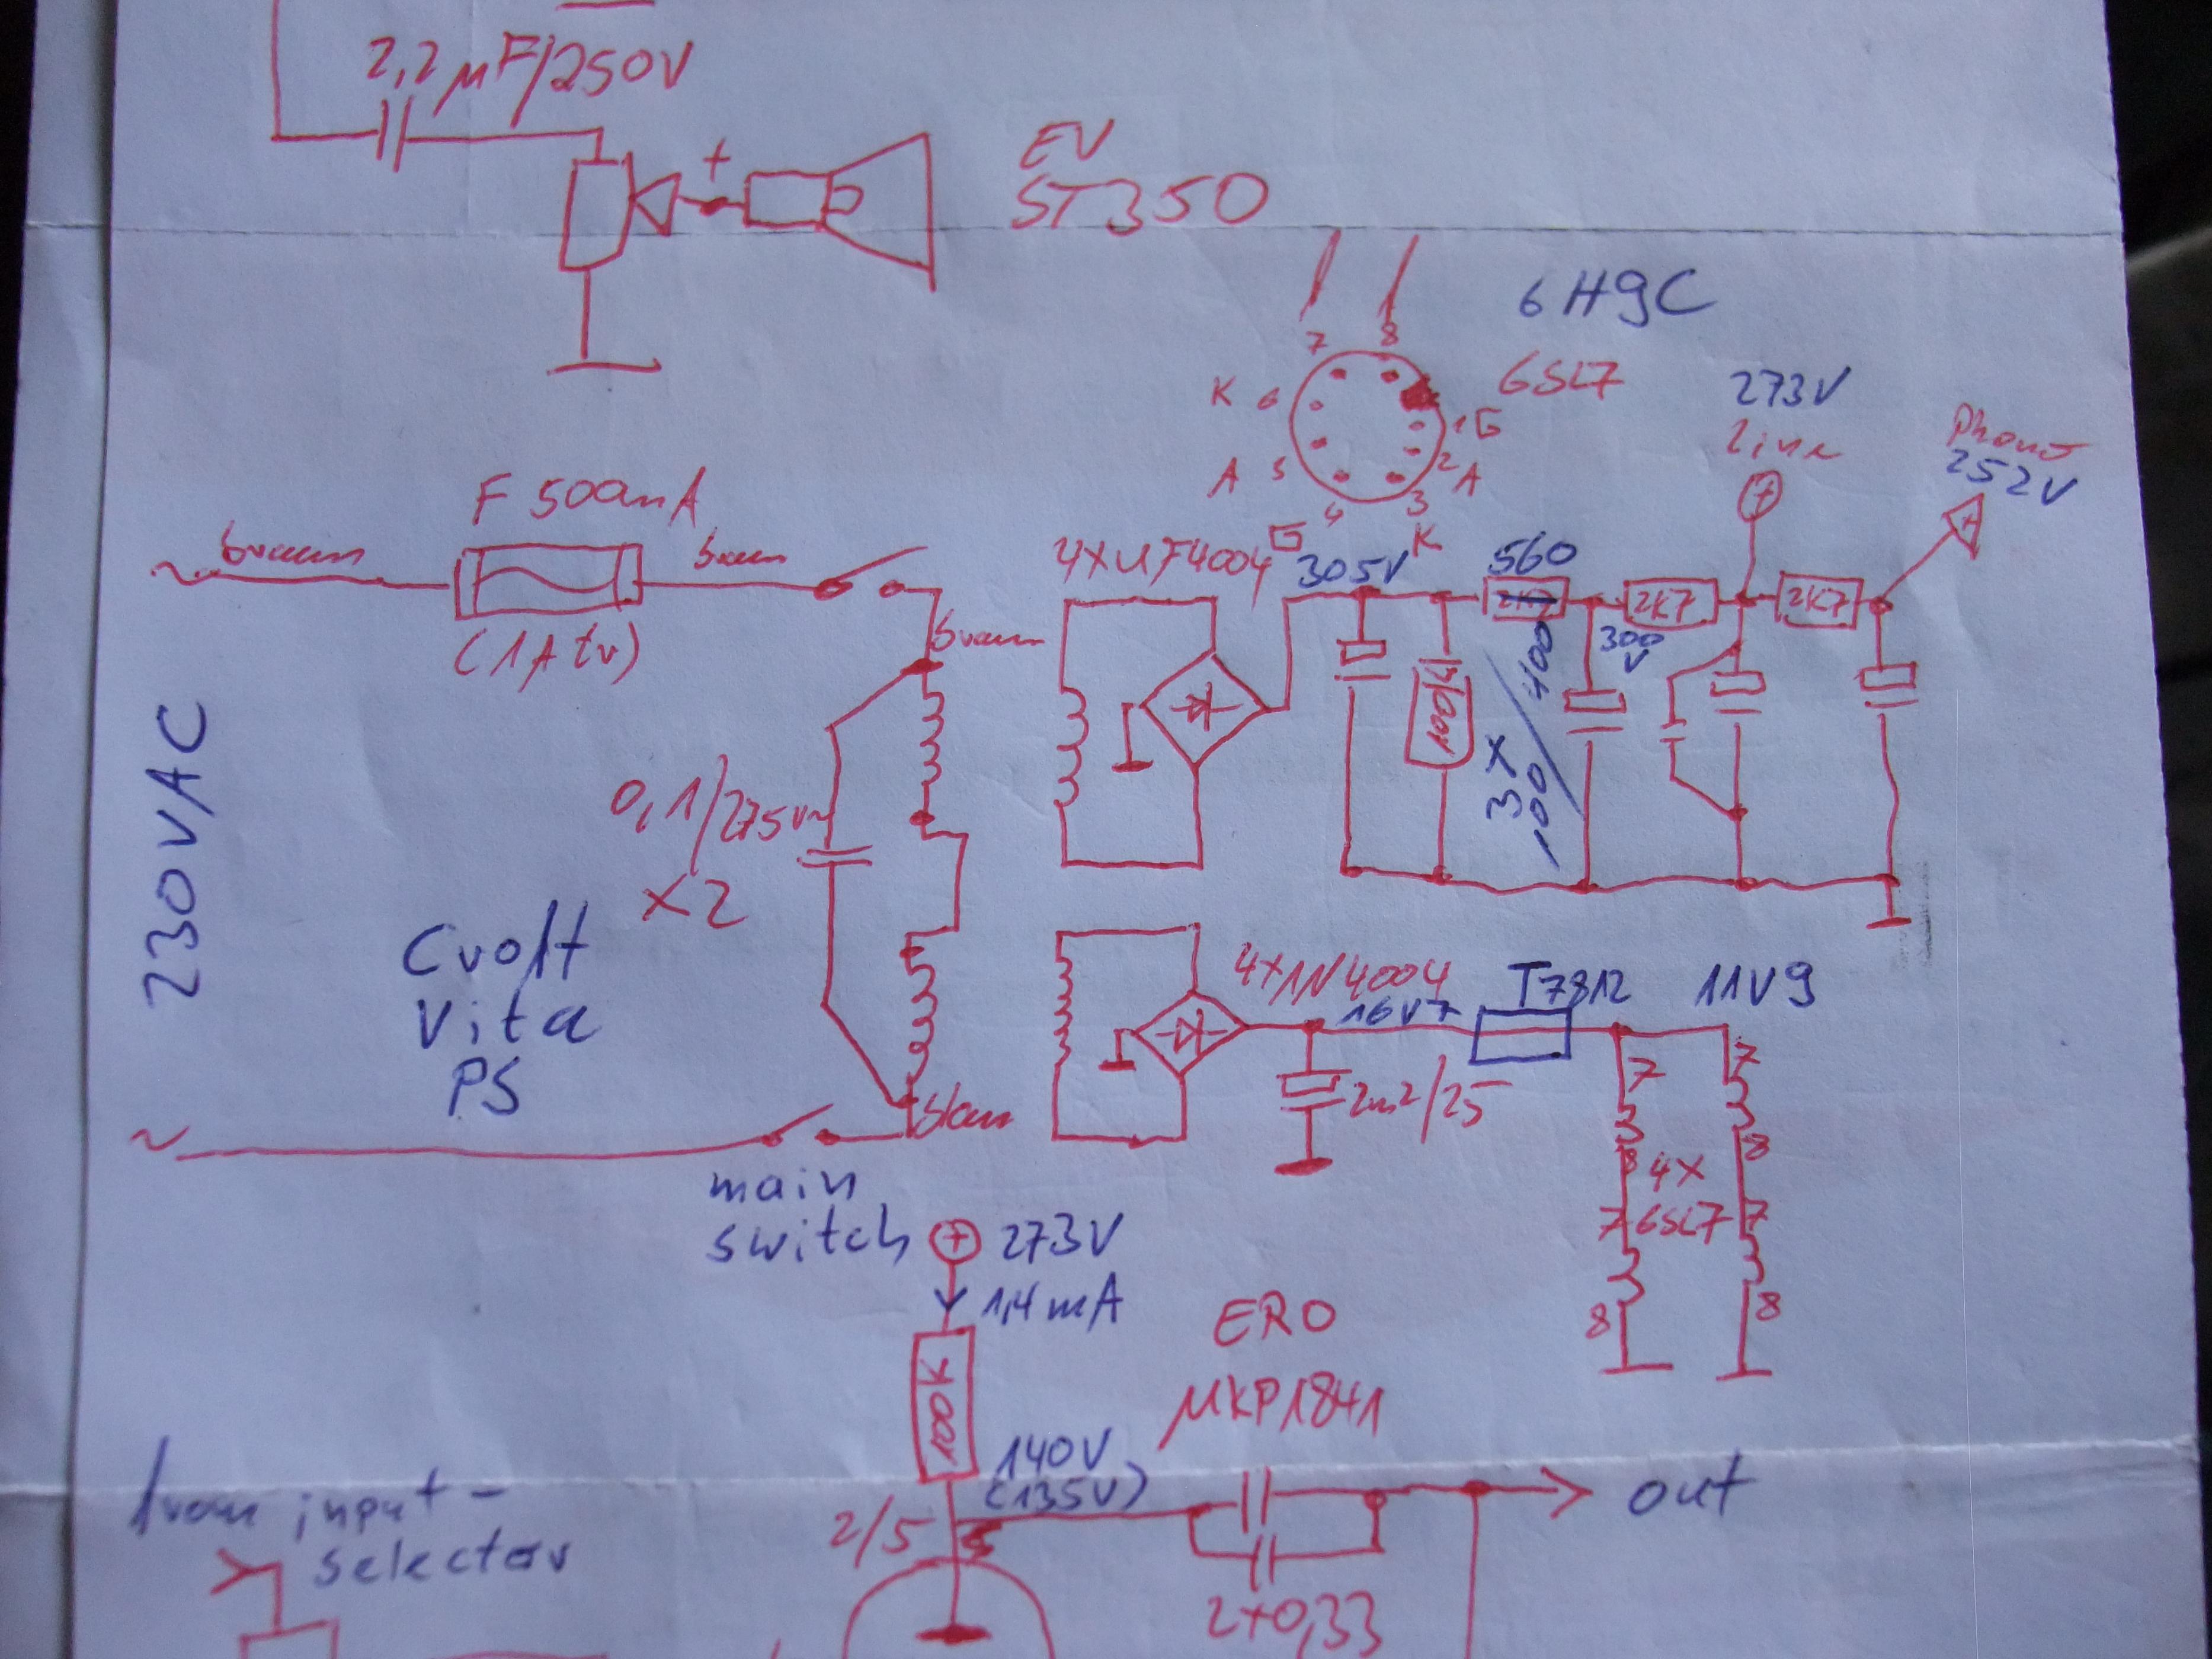 2,2 µF/250V
+
EV
ST350
6H9C
6SL7
7
8
K 6
1 G
A 5
2 A
4
3
G
K
273V
Line
Phono
252V
F 500mA
braun
braun
(1A tr)
braun
4xUF4004
305V
560
2K7
2K7
2K7
300
V
100K
3x
100/400
230VAC
0,1/275V~
X2
Croft
Vita
PS
4x1N4004
16V7
T7812
11V9
2m2/25
blau
main
switch
7
7
8
8
4x
6SL7
7
7
8
8
+ 273V
1,4mA
100K
ERO
MKP1841
140V
(135V)
2/5
out
2x0,33
from input-
selector